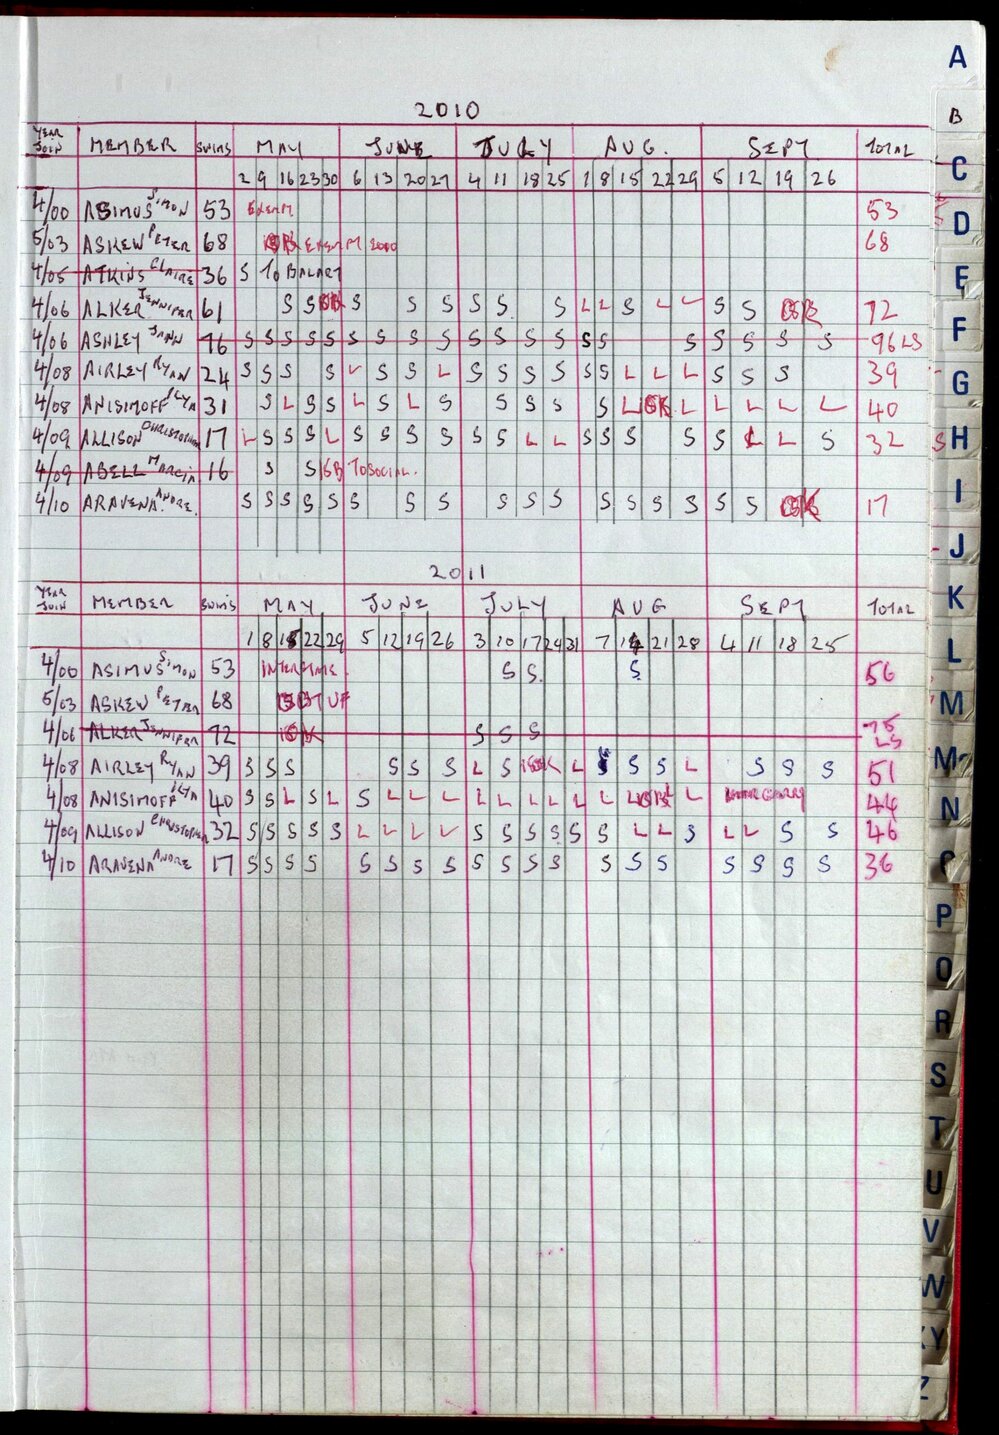 2010
YEAR JOIN MEMBER SWIMS MAY JUNE JULY AUG. SEPT TOTAL
2 9 16 23 30 6 13 20 27 4 11 18 25 1 8 15 22 29 5 12 19 26
4/00 ASIMUS SIMON 53 EXEMPT 53
5/03 ASKEW PETER 68 EXEMPT 2010 68
4/05 ATKINS CLAIRE 36 S TO BALART
4/06 ALKER JENNIFER 61 S S S S S S S S L L S L L S S 72
4/06 ASHLEY JANN 76 S S S S S S S S S S S S S S S S S S S S S 96 LS
4/08 AIRLEY RYAN 24 S S S S L S S L S S S S S S L L L S S S 39
4/08 ANISIMOFF ILYA 31 S L S S L S L S S S S S L L L L L L 40
4/09 ALLISON CHRISTOPHER 17 L S S S L S S S S S S L L S S S S S L L S 32
4/09 ABELL MARCIA 16 S S TO SOCIAL.
4/10 ARAVENA ANDRE. S S S S S S S S S S S S S S S S S S 17
2011
YEAR JOIN MEMBER SWIMS MAY JUNE JULY AUG SEPT TOTAL
1 8 15 22 29 5 12 19 26 3 10 17 24 31 7 14 21 28 4 11 18 25
4/00 ASIMUS SIMON 53 S S. S 56
5/03 ASKEW PETER 68
4/06 ALKER JENNIFER 72 S S S 75 LS
4/08 AIRLEY RYAN 39 S S S S S S L S L S S S L S S S 51
4/08 ANISIMOFF ILYA 40 S S L S L S L L L L L L L L L L L 44
4/09 ALLISON CHRISTOPHER 32 S S S S S L L L L S S S S S S L L S L L S S 46
4/10 ARAVENA ANDRE 17 S S S S S S S S S S S S S S S S S S S 36
A
B
C
D
E
F
G
H
I
J
K
L
M
Mc
N
P
Q
R
S
T
U
V
W
XY
Z